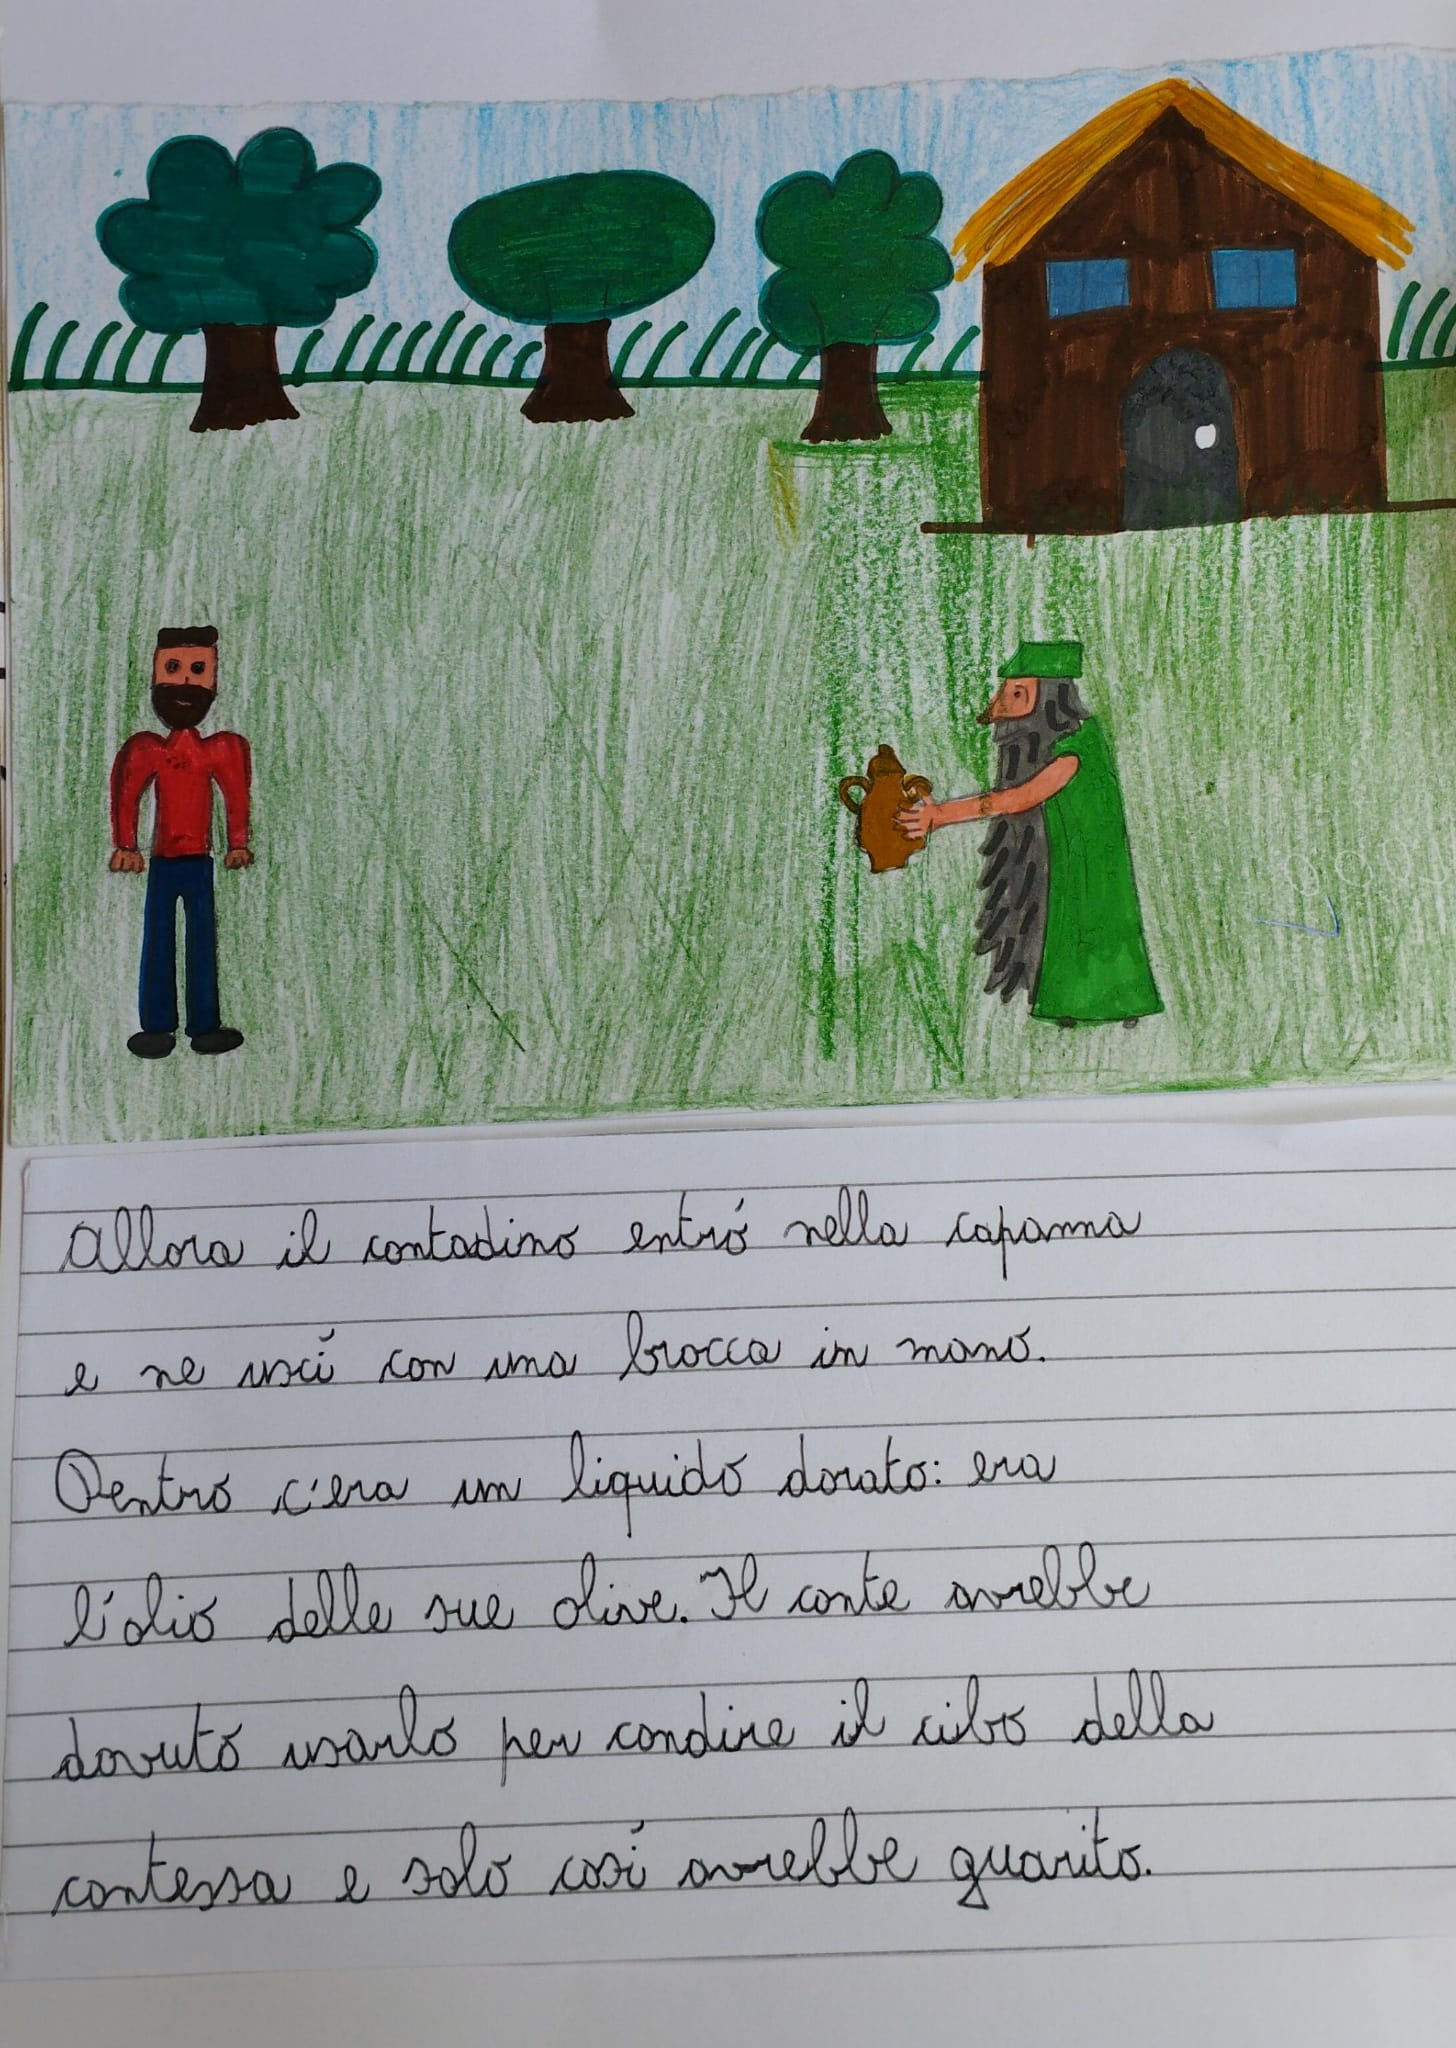 Allora il contadino entró nella capanna
e ne uscí con una brocca in mano.
Dentro c'era un liquido dorato: era
l'olio delle sue olive. Il conte avrebbe
dovuto usarlo per condire il cibo della
contessa e solo cosí avrebbe guarito.